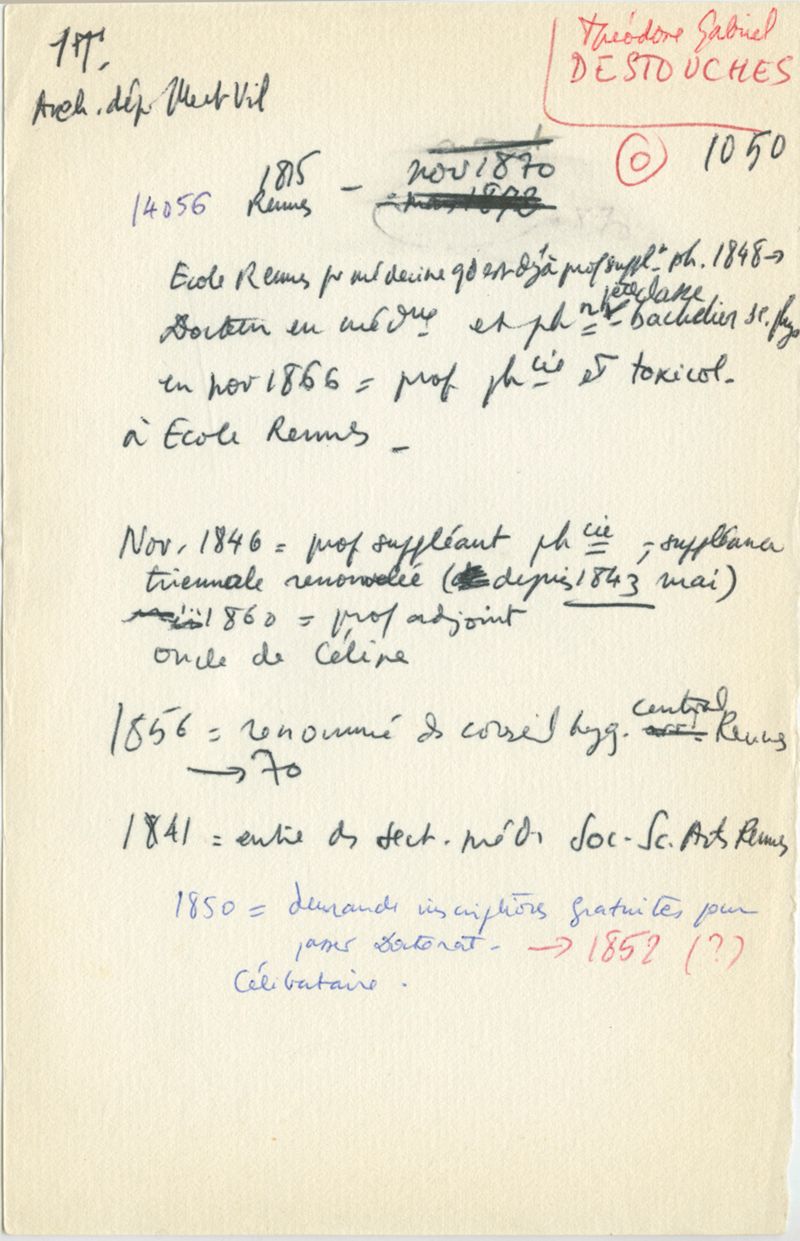 Théodore Gabriel
DESTOUCHES
Arch. dép Ille et Vil
1050
1815 – nov 1870
14056 Rennes
Ecole Rennes pr médecine qd est déjà prof suppl. ph. 1848→
1ère classe
Docteur en méd ne et ph bachelier sc. phys
en nov 1866 = prof ph cie et toxicol.
à Ecole Rennes –
Nov. 1846 = prof suppléant ph cie ; suppléance
triennale renouvelée (depuis 1843 mai)
1860 = prof adjoint
oncle de Céline
1856 = renommé ds conseil hyg. central Rennes
→ 70
1841 = entre ds sect. méd. Soc. Sc. Arts Rennes
1850 = demande inscriptions gratuites pour
passer Doctorat. → 1852 (?)
Célibataire .